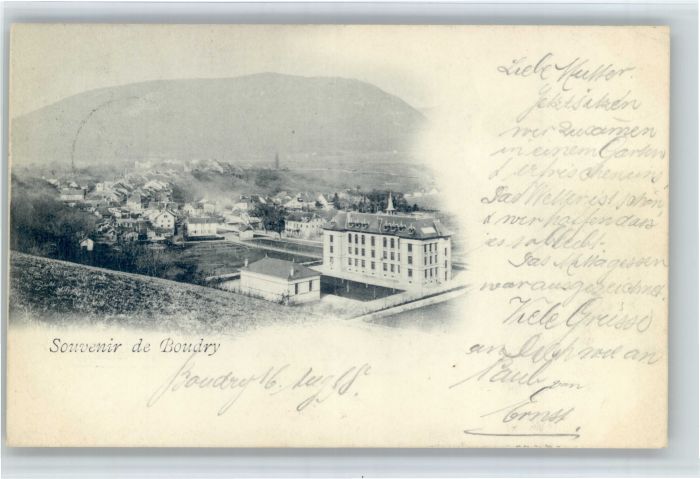 Liebe Mutter.
Jetzt sitzen
wir zusammen
in einem Garten
Das Wetter ist schön
& wir hoffen dass
es so bleibt.
Das Mittagessen
war ausgezeichnet.
Viele Grüsse
an Dich wie an
Paul von
Ernst
Souvenir de Boudry
Boudry